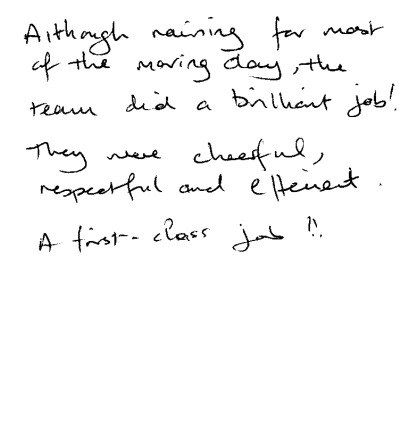 Although raining for most
of the moving day, the
team did a brilliant job!
They were cheerful,
respectful and efficient.
A first-class job!!